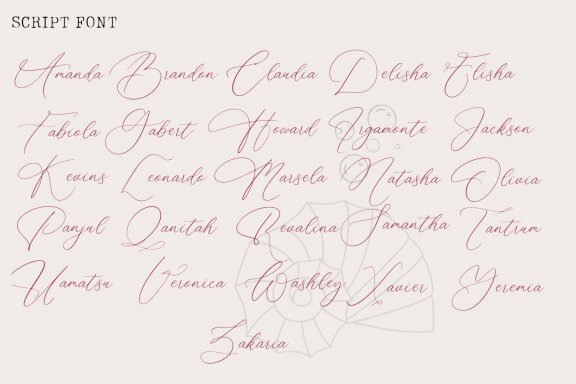 SCRIPT FONT
Amanda Brandon Claudia Delisha Elisha
Fabiola Gabert Howard Irgamonte Jackson
Kevins Leonardo Marsela Natasha Olivia
Panjul Qanitah Revalina Samantha Tantrum
Uamatsu Veronica Washley Xavier Yeremia
Zakaria